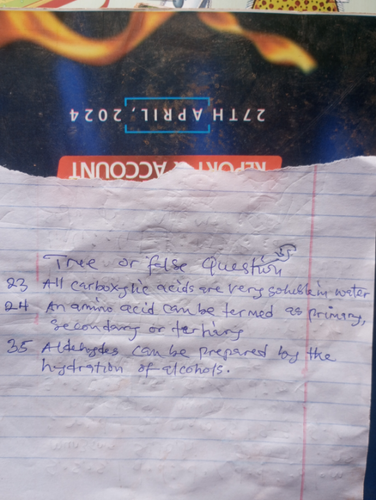 27TH APRIL, 2024
REPORT & ACCOUNT
True or false Question
23 All carboxylic acids are very soluble in water
24 An amino acid can be termed as primary,
secondary or tertiary
35 Aldehydes can be prepared by the
hydration of alcohols.